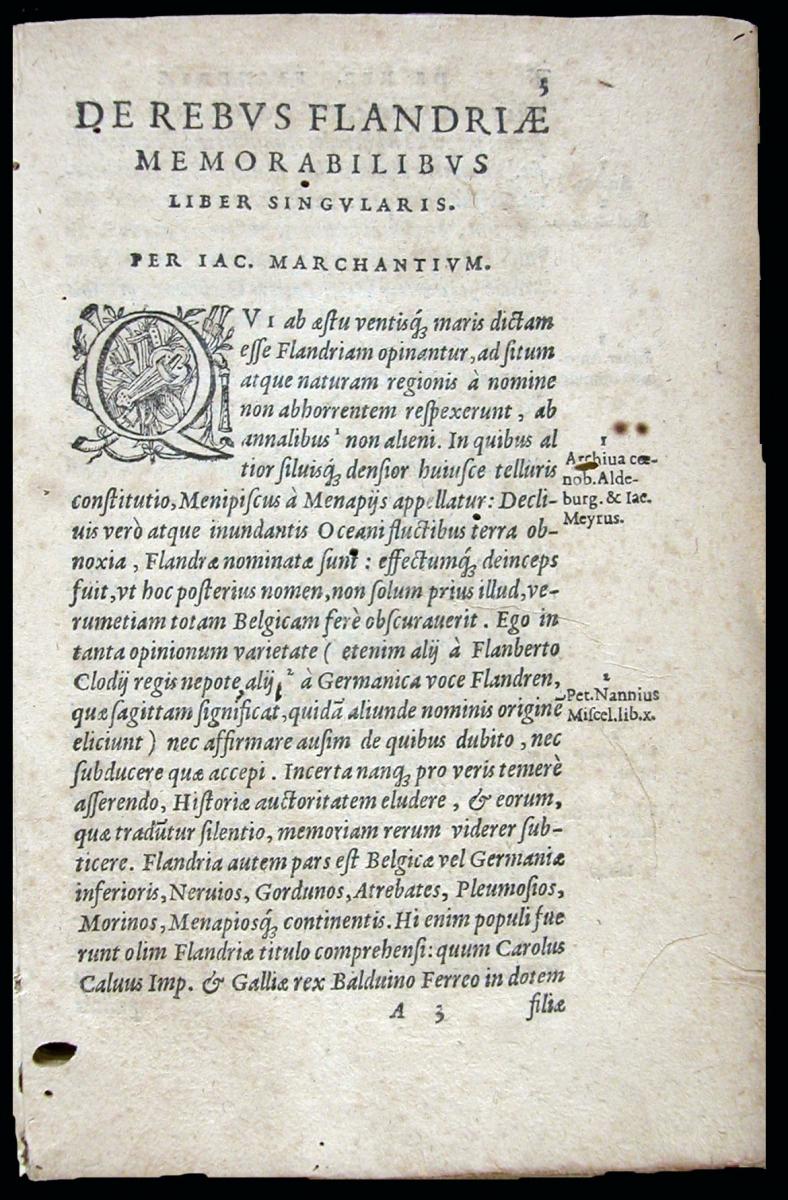 5
DE REBVS FLANDRIÆ
MEMORABILIBVS
LIBER SINGVLARIS.
PER IAC. MARCHANTIVM.
QVI ab æstu ventisq́; maris dictam
esse Flandriam opinantur, ad situm
atque naturam regionis à nomine
non abhorrentem respexerunt, ab
annalibus ¹ non alieni. In quibus al
tior siluisq́; densior huiusce telluris
constitutio, Menipiscus à Menapijs appellatur: Decli-
uis verò atque inundantis Oceani fluctibus terra ob-
noxia, Flandræ nominatæ sunt: effectumq́; deinceps
fuit, vt hoc posterius nomen, non solum prius illud, ve-
rumetiam totam Belgicam ferè obscurauerit. Ego in
tanta opinionum varietate ( etenim alij à Flanberto
Clodij regis nepote, alij, ² à Germanica voce Flandren,
quæ sagittam significat, quidã aliunde nominis originẽ
eliciunt ) nec affirmare ausim de quibus dubito, nec
subducere quæ accepi. Incerta nanq; pro veris temerè
asserendo, Historiæ auctoritatem eludere, & eorum,
quæ tradũtur silentio, memoriam rerum viderer sub-
ticere. Flandria autem pars est Belgicæ vel Germaniæ
inferioris, Neruios, Gordunos, Atrebates, Pleumosios,
Morinos, Menapiosq́; continentis. Hi enim populi fue
runt olim Flandriæ titulo comprehensi: quum Carolus
Caluus Imp. & Galliæ rex Balduino Ferreo in dotem
A 3
filiæ
1
Archiua cœ-
nob. Alde-
burg. & Iac.
Meyrus.
2
Pet. Nannius
Miscel. lib. x.